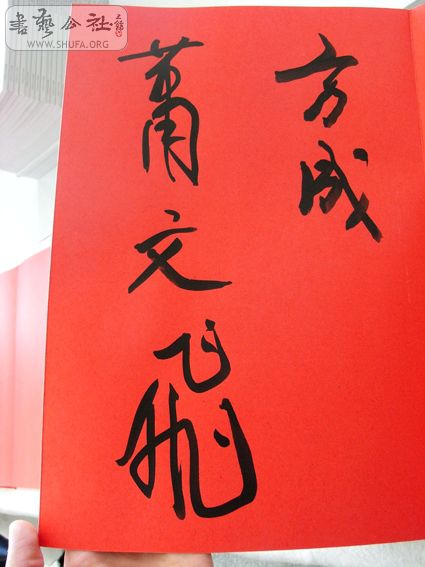 方成
蕭文飛
書藝公社
WWW.SHUFA.ORG